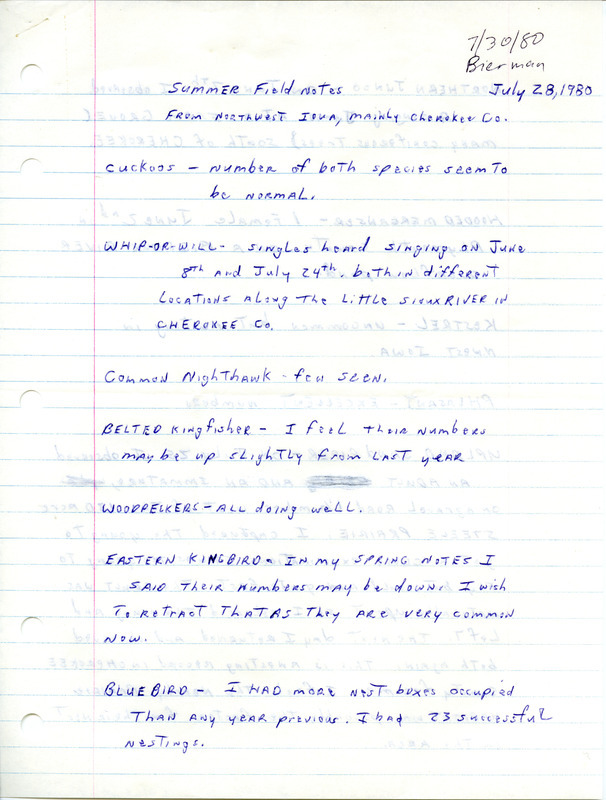 7/30/80
Bierman
Summer Field Notes July 28, 1980
From Northwest Iowa, mainly Cherokee Co.
Cuckoos - number of both species seem to
be normal.
Whip-or-will - singles heard singing on June
8th and July 24th. both in different
locations along the Little Sioux River in
Cherokee Co.
Common Nighthawk - few seen.
Belted Kingfisher - I feel their numbers
maybe up slightly from last year
Woodpeckers - all doing well.
Eastern Kingbird - In my spring notes I
said their numbers may be down. I wish
to retract that as they are very common
now.
Bluebird - I had more nest boxes occupied
than any year previous. I had 23 successful
nestings.